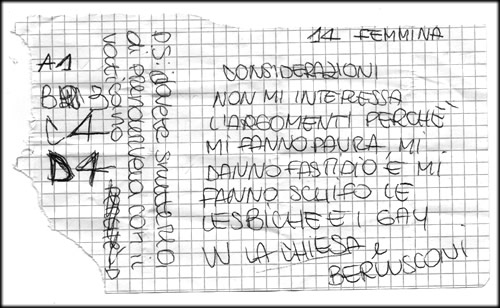 14 FEMMINA
A1
B 3
C4
D4
CONSIDERAZIONI
NON MI INTERESSA
L'ARGOMENTI PERCHÈ
MI FANNO PAURA, MI
DANNO FASTIDIO E MI
FANNO SCHIFO LE
LESBICHE E I GAY
W LA CHIESA e
BERLUSCONI
smetterla
di prendervela con il
vaticano